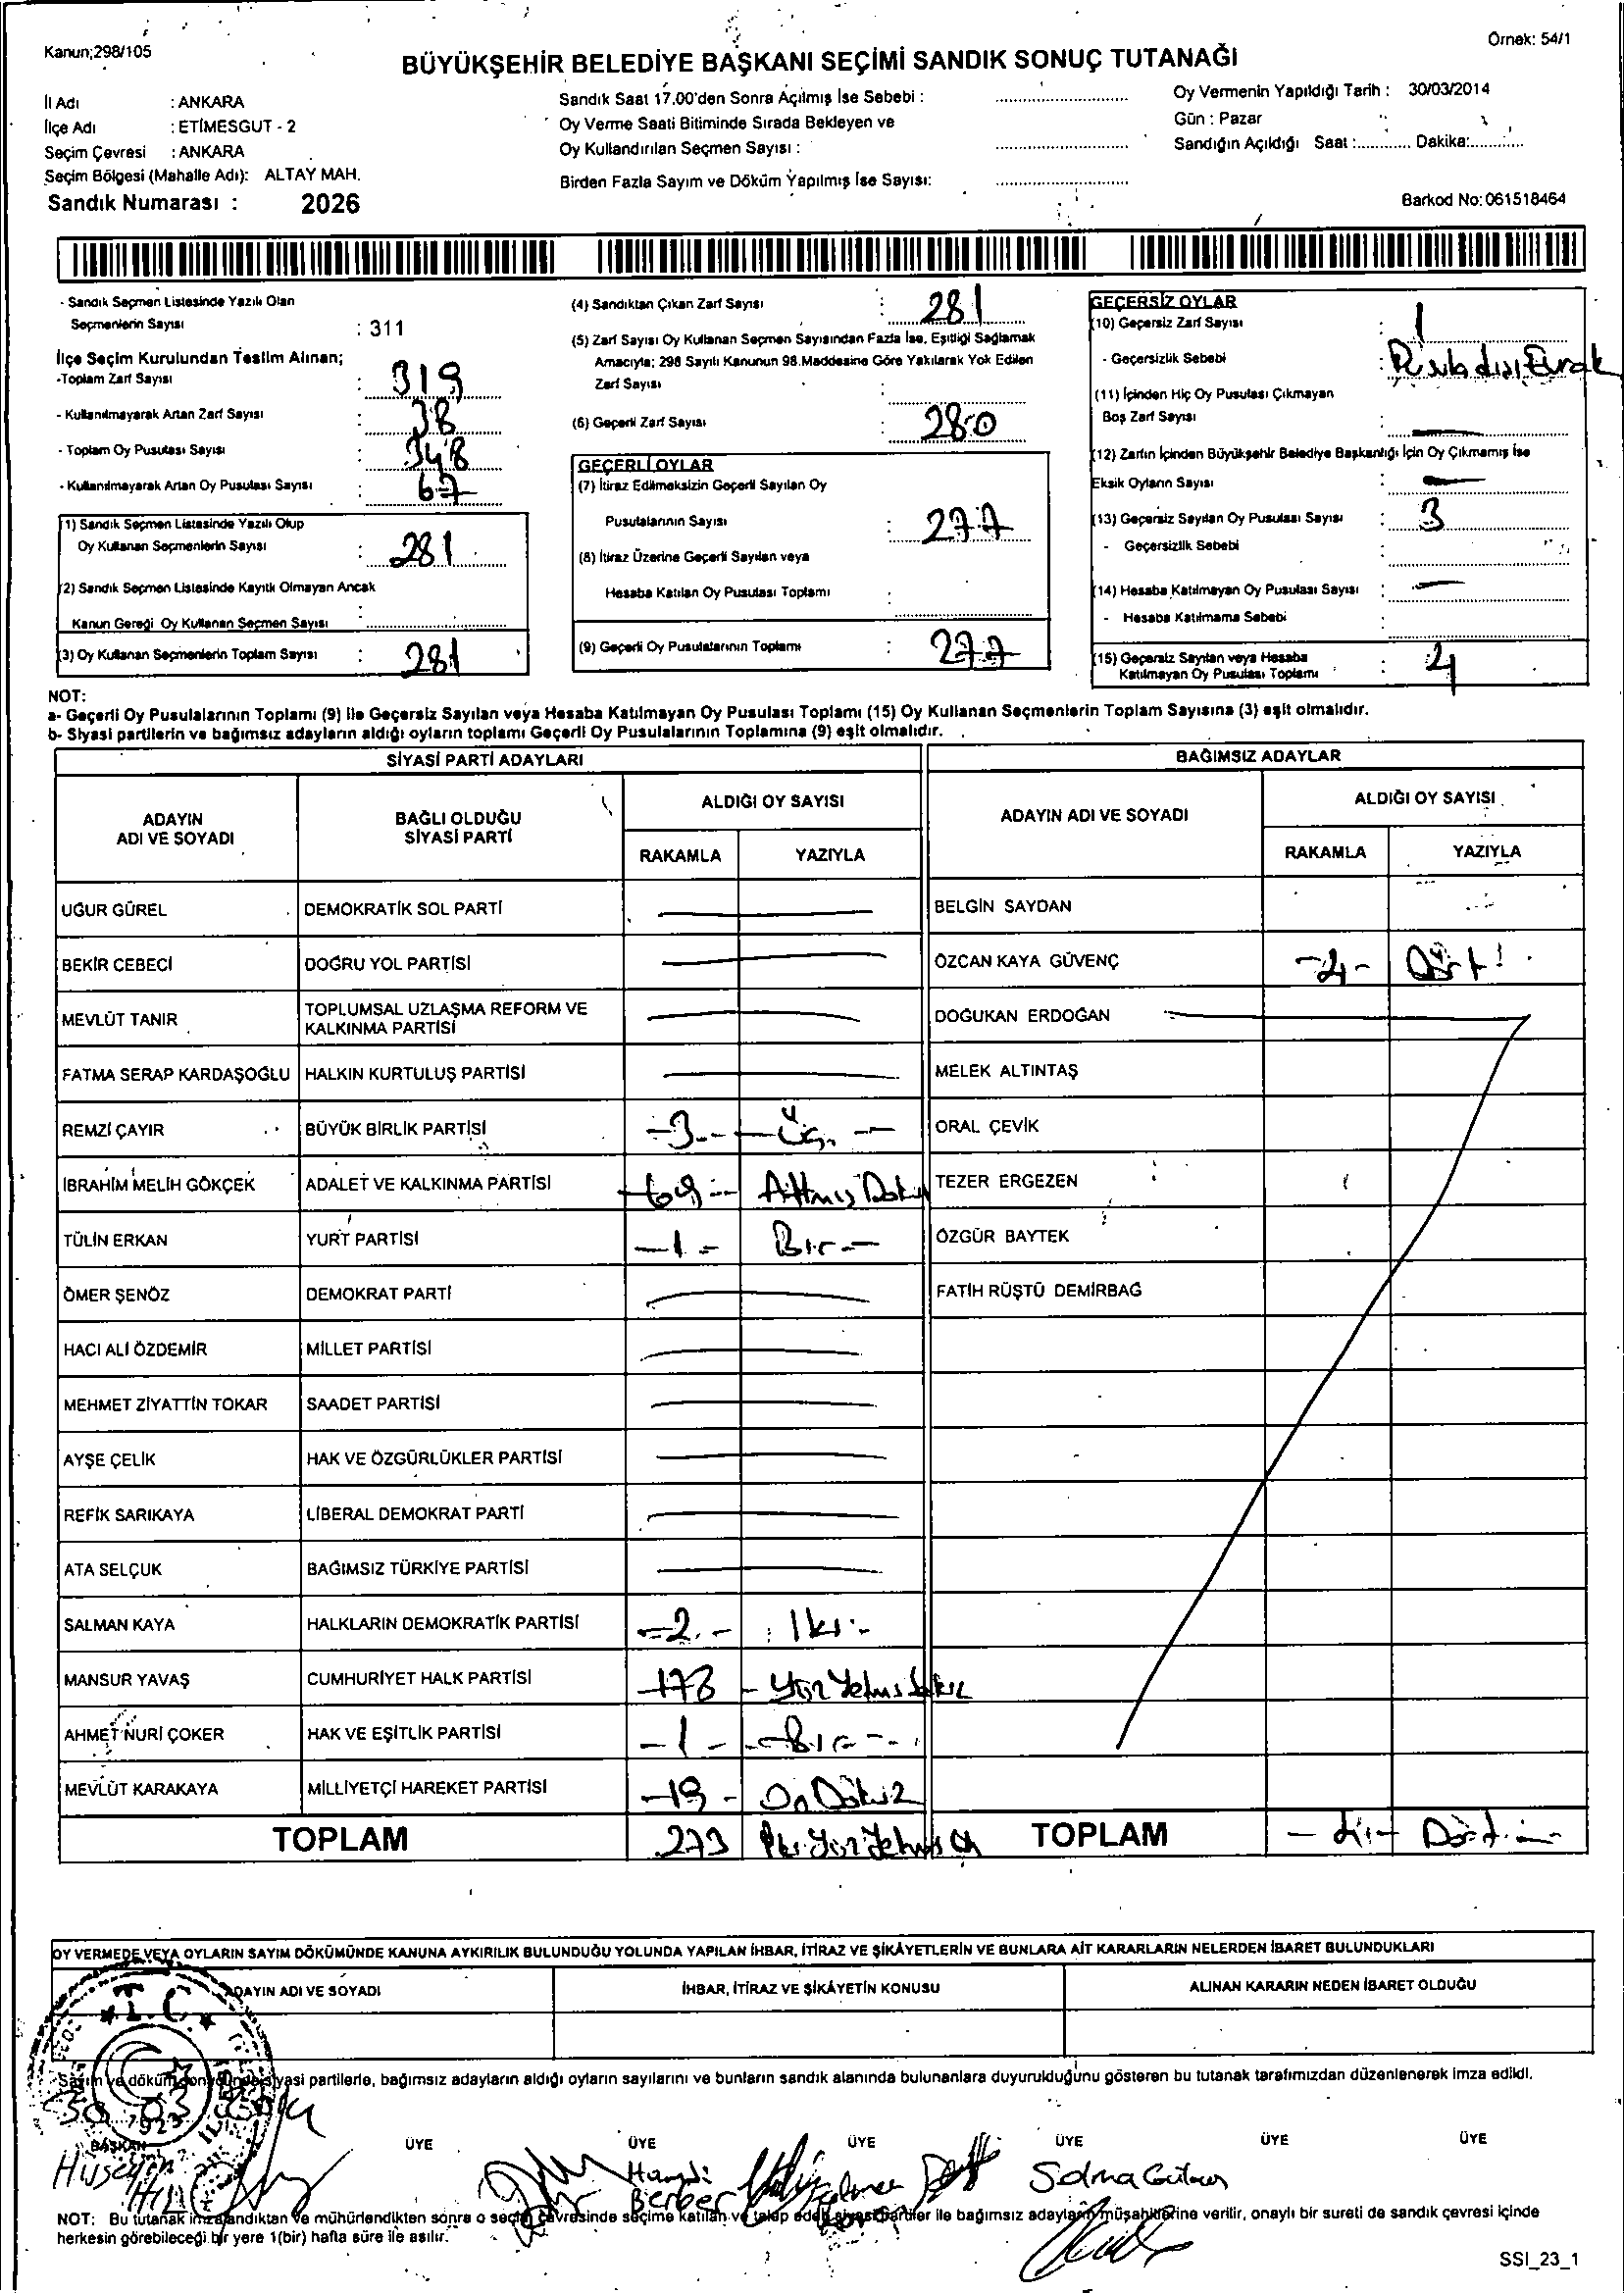 Kanun;298/105
Örnek: 54/1
BÜYÜKŞEHİR BELEDİYE BAŞKANI SEÇİMİ SANDIK SONUÇ TUTANAĞI
İl Adı : ANKARA
İlçe Adı : ETİMESGUT - 2
Seçim Çevresi : ANKARA
Seçim Bölgesi (Mahalle Adı): ALTAY MAH.
Sandık Numarası : 2026
Sandık Saat 17.00'den Sonra Açılmış İse Sebebi :
Oy Verme Saati Bitiminde Sırada Bekleyen ve
Oy Kullandırılan Seçmen Sayısı :
Birden Fazla Sayım ve Döküm Yapılmış İse Sayısı:
Oy Vermenin Yapıldığı Tarih : 30/03/2014
Gün : Pazar
Sandığın Açıldığı Saat :............ Dakika:............
Barkod No: 061518464
- Sandık Seçmen Listesinde Yazılı Olan
Seçmenlerin Sayısı : 311
İlçe Seçim Kurulundan Teslim Alınan;
-Toplam Zarf Sayısı : 319
- Kullanılmayarak Artan Zarf Sayısı : 38
- Toplam Oy Pusulası Sayısı : 348
- Kullanılmayarak Artan Oy Pusulası Sayısı : 67
(1) Sandık Seçmen Listesinde Yazılı Olup
Oy Kullanan Seçmenlerin Sayısı : 281
(2) Sandık Seçmen Listesinde Kayıtlı Olmayan Ancak
Kanun Gereği Oy Kullanan Seçmen Sayısı :
(3) Oy Kullanan Seçmenlerin Toplam Sayısı : 281
(4) Sandıktan Çıkan Zarf Sayısı : 281
(5) Zarf Sayısı Oy Kullanan Seçmen Sayısından Fazla İse, Eşitliği Sağlamak
Amacıyla; 298 Sayılı Kanunun 98.Maddesine Göre Yakılarak Yok Edilen
Zarf Sayısı :
(6) Geçerli Zarf Sayısı : 280
GEÇERLİ OYLAR
(7) İtiraz Edilmeksizin Geçerli Sayılan Oy
Pusulalarının Sayısı : 277
(8) İtiraz Üzerine Geçerli Sayılan veya
Hesaba Katılan Oy Pusulası Toplamı :
(9) Geçerli Oy Pusulalarının Toplamı : 277
GEÇERSİZ OYLAR
(10) Geçersiz Zarf Sayısı : 1
- Geçersizlik Sebebi : Pusula dışı Evrak
(11) İçinden Hiç Oy Pusulası Çıkmayan
Boş Zarf Sayısı : —
(12) Zarfın İçinden Büyükşehir Belediye Başkanlığı İçin Oy Çıkmamış İse
Eksik Oyların Sayısı : —
(13) Geçersiz Sayılan Oy Pusulası Sayısı : 3
- Geçersizlik Sebebi
(14) Hesaba Katılmayan Oy Pusulası Sayısı : —
- Hesaba Katılmama Sebebi
(15) Geçersiz Sayılan veya Hesaba
Katılmayan Oy Pusulası Toplamı : 4
NOT:
a- Geçerli Oy Pusulalarının Toplamı (9) ile Geçersiz Sayılan veya Hesaba Katılmayan Oy Pusulası Toplamı (15) Oy Kullanan Seçmenlerin Toplam Sayısına (3) eşit olmalıdır.
b- Siyasi partilerin ve bağımsız adayların aldığı oyların toplamı Geçerli Oy Pusulalarının Toplamına (9) eşit olmalıdır.
SİYASİ PARTİ ADAYLARI
ADAYIN ADI VE SOYADI BAĞLI OLDUĞU SİYASİ PARTİ ALDIĞI OY SAYISI
RAKAMLA YAZIYLA
UĞUR GÜREL DEMOKRATİK SOL PARTİ —
BEKİR CEBECİ DOĞRU YOL PARTİSİ —
MEVLÜT TANIR TOPLUMSAL UZLAŞMA REFORM VE KALKINMA PARTİSİ —
FATMA SERAP KARDAŞOĞLU HALKIN KURTULUŞ PARTİSİ —
REMZİ ÇAYIR BÜYÜK BİRLİK PARTİSİ -3- Üç
İBRAHİM MELİH GÖKÇEK ADALET VE KALKINMA PARTİSİ -69- Altmış Dokuz
TÜLİN ERKAN YURT PARTİSİ -1- Bir-
ÖMER ŞENÖZ DEMOKRAT PARTİ —
HACI ALİ ÖZDEMİR MİLLET PARTİSİ —
MEHMET ZİYATTİN TOKAR SAADET PARTİSİ —
AYŞE ÇELİK HAK VE ÖZGÜRLÜKLER PARTİSİ —
REFİK SARIKAYA LİBERAL DEMOKRAT PARTİ —
ATA SELÇUK BAĞIMSIZ TÜRKİYE PARTİSİ —
SALMAN KAYA HALKLARIN DEMOKRATİK PARTİSİ -2- İki-
MANSUR YAVAŞ CUMHURİYET HALK PARTİSİ -178 - Yüz Yetmiş Sekiz
AHMET NURİ ÇOKER HAK VE EŞİTLİK PARTİSİ -1- -Bir-
MEVLÜT KARAKAYA MİLLİYETÇİ HAREKET PARTİSİ -19- On Dokuz
TOPLAM 273 İki Yüz Yetmiş Üç
BAĞIMSIZ ADAYLAR
ADAYIN ADI VE SOYADI ALDIĞI OY SAYISI
RAKAMLA YAZIYLA
BELGİN SAYDAN
ÖZCAN KAYA GÜVENÇ -4- Dört
DOĞUKAN ERDOĞAN
MELEK ALTINTAŞ
ORAL ÇEVİK
TEZER ERGEZEN
ÖZGÜR BAYTEK
FATİH RÜŞTÜ DEMİRBAĞ
TOPLAM -4- Dört
OY VERMEDE VEYA OYLARIN SAYIM DÖKÜMÜNDE KANUNA AYKIRILIK BULUNDUĞU YOLUNDA YAPILAN İHBAR, İTİRAZ VE ŞİKÂYETLERİN VE BUNLARA AİT KARARLARIN NELERDEN İBARET BULUNDUKLARI
ADAYIN ADI VE SOYADI İHBAR, İTİRAZ VE ŞİKÂYETİN KONUSU ALINAN KARARIN NEDEN İBARET OLDUĞU
T.C.
Sayım ve döküm sonucunda siyasi partilerle, bağımsız adayların aldığı oyların sayılarını ve bunların sandık alanında bulunanlara duyurulduğunu gösteren bu tutanak tarafımızdan düzenlenerek imza edildi.
30 03 2014
BAŞKAN ÜYE ÜYE ÜYE ÜYE ÜYE ÜYE
Hüseyin
Hamdi Berber
Selma Gülen
NOT: Bu tutanak imzalandıktan ve mühürlendikten sonra o seçim çevresinde seçime katılan ve talep eden siyasi partiler ile bağımsız adayların müşahitlerine verilir, onaylı bir sureti de sandık çevresi içinde
herkesin görebileceği bir yere 1(bir) hafta süre ile asılır.
SSI_23_1